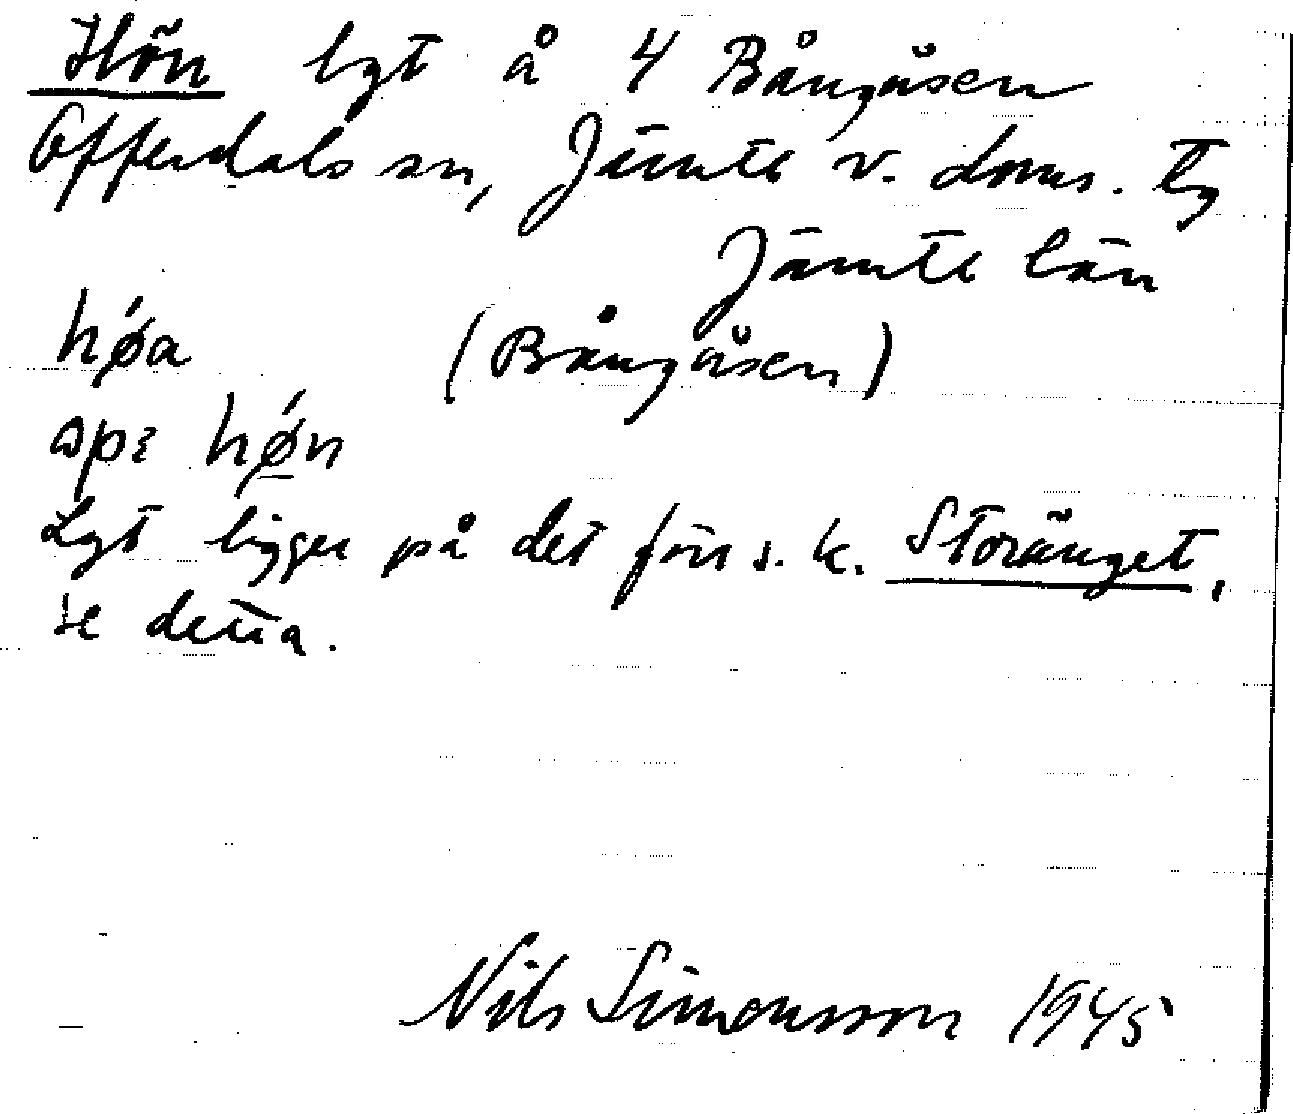 Hön lgt å 4 Bångåsen
Offerdals sn, Jämte v. doms. lg
Jämte län
hǿa (Bångåsen)
spɛ hǿn
Lgt ligger på det förr s. k. Storänget,
se detta.
Nils Simonsson 1945